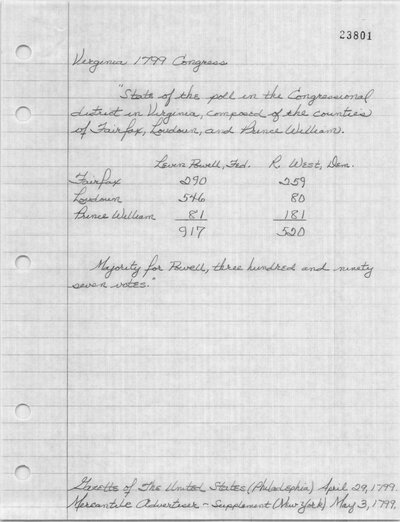 23801
Virginia 1799 Congress
"State of the poll in the Congressional
district in Virginia, composed of the counties
of Fairfax, Loudoun, and Prince William.
Levin Powell, Fed. R. West, Dem.
Fairfax 290 259
Loudoun 546 80
Prince William 81 181
917 520
Majority for Powell, three hundred and ninety
seven votes."
Gazette of The United States (Philadelphia) April 29, 1799.
Mercantile Advertiser - Supplement (New York) May 3, 1799.